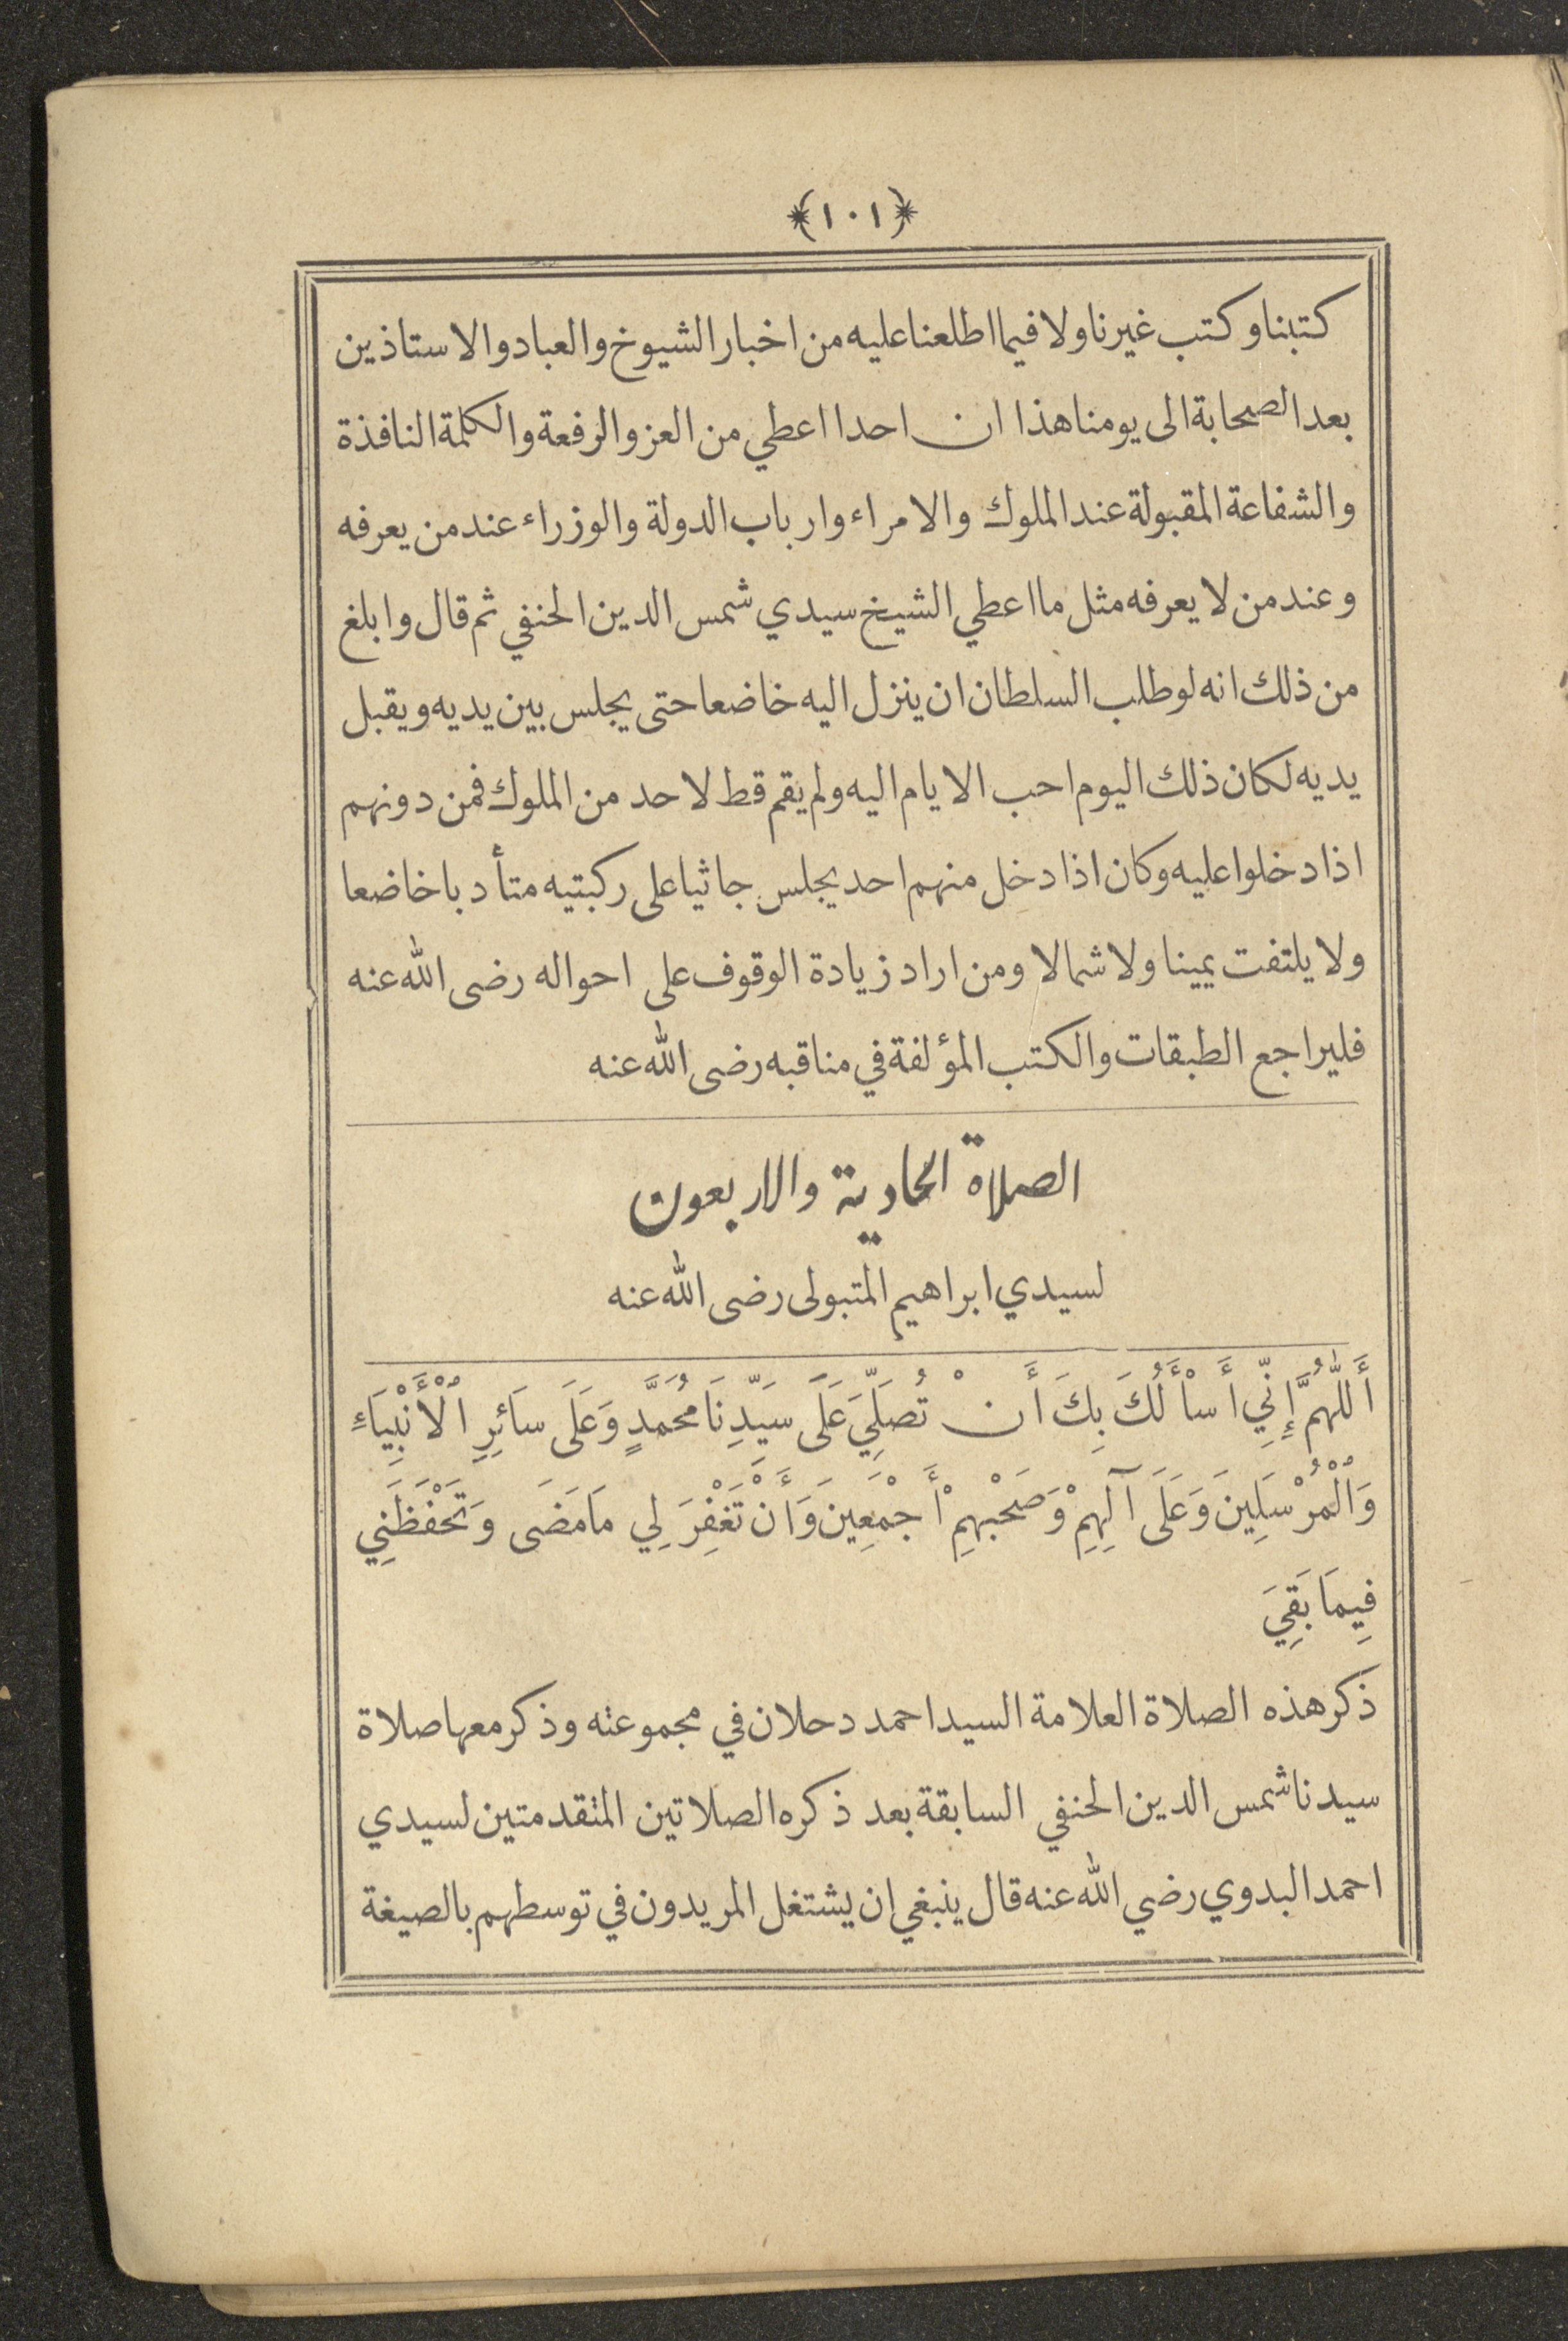 ﴿١٠١﴾
كتبنا وكتب غيرنا ولا فيما اطلعنا عليه من اخبار الشيوخ والعباد والاستاذين
بعد الصحابة الى يومنا هذا ان احدا اعطي من العز والرفعة والكلمة النافذة
والشفاعة المقبولة عند الملوك والامراء وارباب الدولة والوزراء عند من يعرفه
وعند من لا يعرفه مثل ما اعطي الشيخ سيدي شمس الدين الحنفي ثم قال وابلغ
من ذلك انه لو طلب السلطان ان ينزل اليه خاضعا حتى يجلس بين يديه ويقبل
يديه لكان ذلك اليوم احب الايام اليه ولم يقم قط لاحد من الملوك فمن دونهم
اذا دخلوا عليه وكان اذا دخل منهم احد يجلس جاثيا على ركبتيه متأدبا خاضعا
ولا يلتفت يمينا ولا شمالا ومن اراد زيادة الوقوف على احواله رضى الله عنه
فليراجع الطبقات والكتب المؤلفة في مناقبه رضى الله عنه
الصلاة الحادية والاربعون
لسيدي ابراهيم المتبولى رضى الله عنه
أَللّٰهُمَّ إِنِّي أَسْأَلُكَ بِكَ أَنْ تُصَلِّيَ عَلَى سَيِّدِنَا مُحَمَّدٍ وَعَلَى سَائِرِ ٱلْأَنْبِيَاءِ
وَٱلْمُرْسَلِينَ وَعَلَى آلِهِمْ وَصَحْبِهِمْ أَجْمَعِينَ وَأَنْ تَغْفِرَ لِي مَا مَضَى وَتَحْفَظَنِي
فِيمَا بَقِيَ
ذكر هذه الصلاة العلامة السيد احمد دحلان في مجموعته وذكر معها صلاة
سيدنا شمس الدين الحنفي السابقة بعد ذكره الصلاتين المتقدمتين لسيدي
احمد البدوي رضي الله عنه قال ينبغي ان يشتغل المريدون في توسطهم بالصيغة